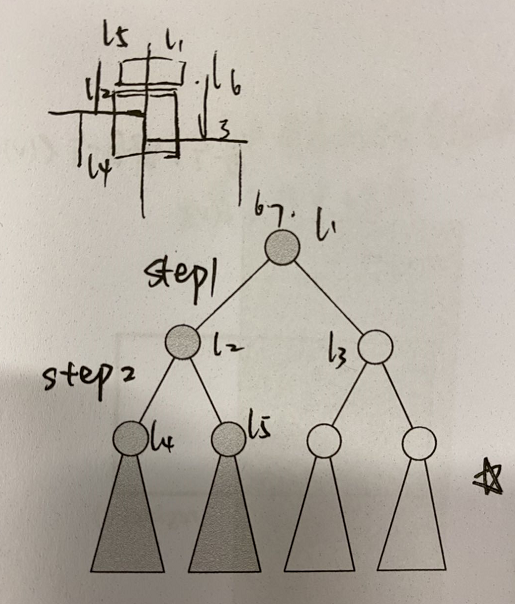 l5 l1
l2 l6
3
l4
l1
step1
l2 l3
step2
l4 l5